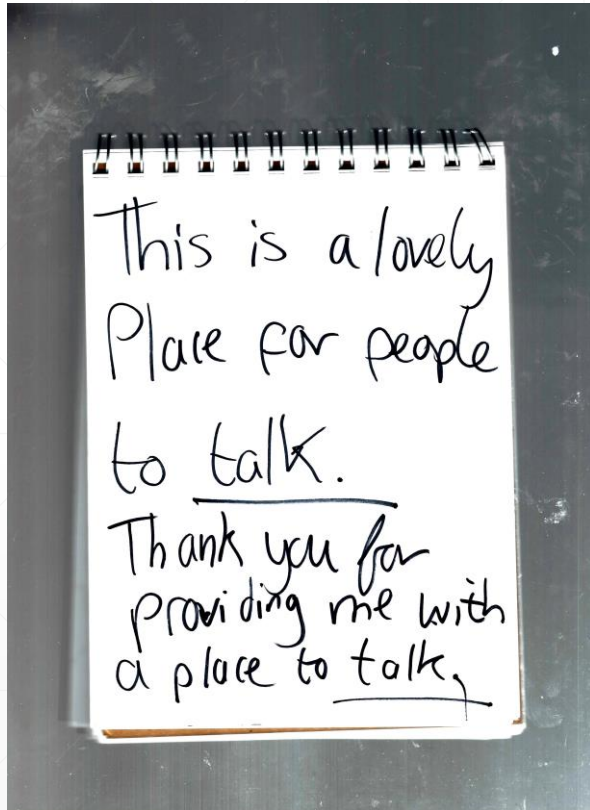 This is a lovely
Place for people
to talk.
Thank you for
providing me with
a place to talk,